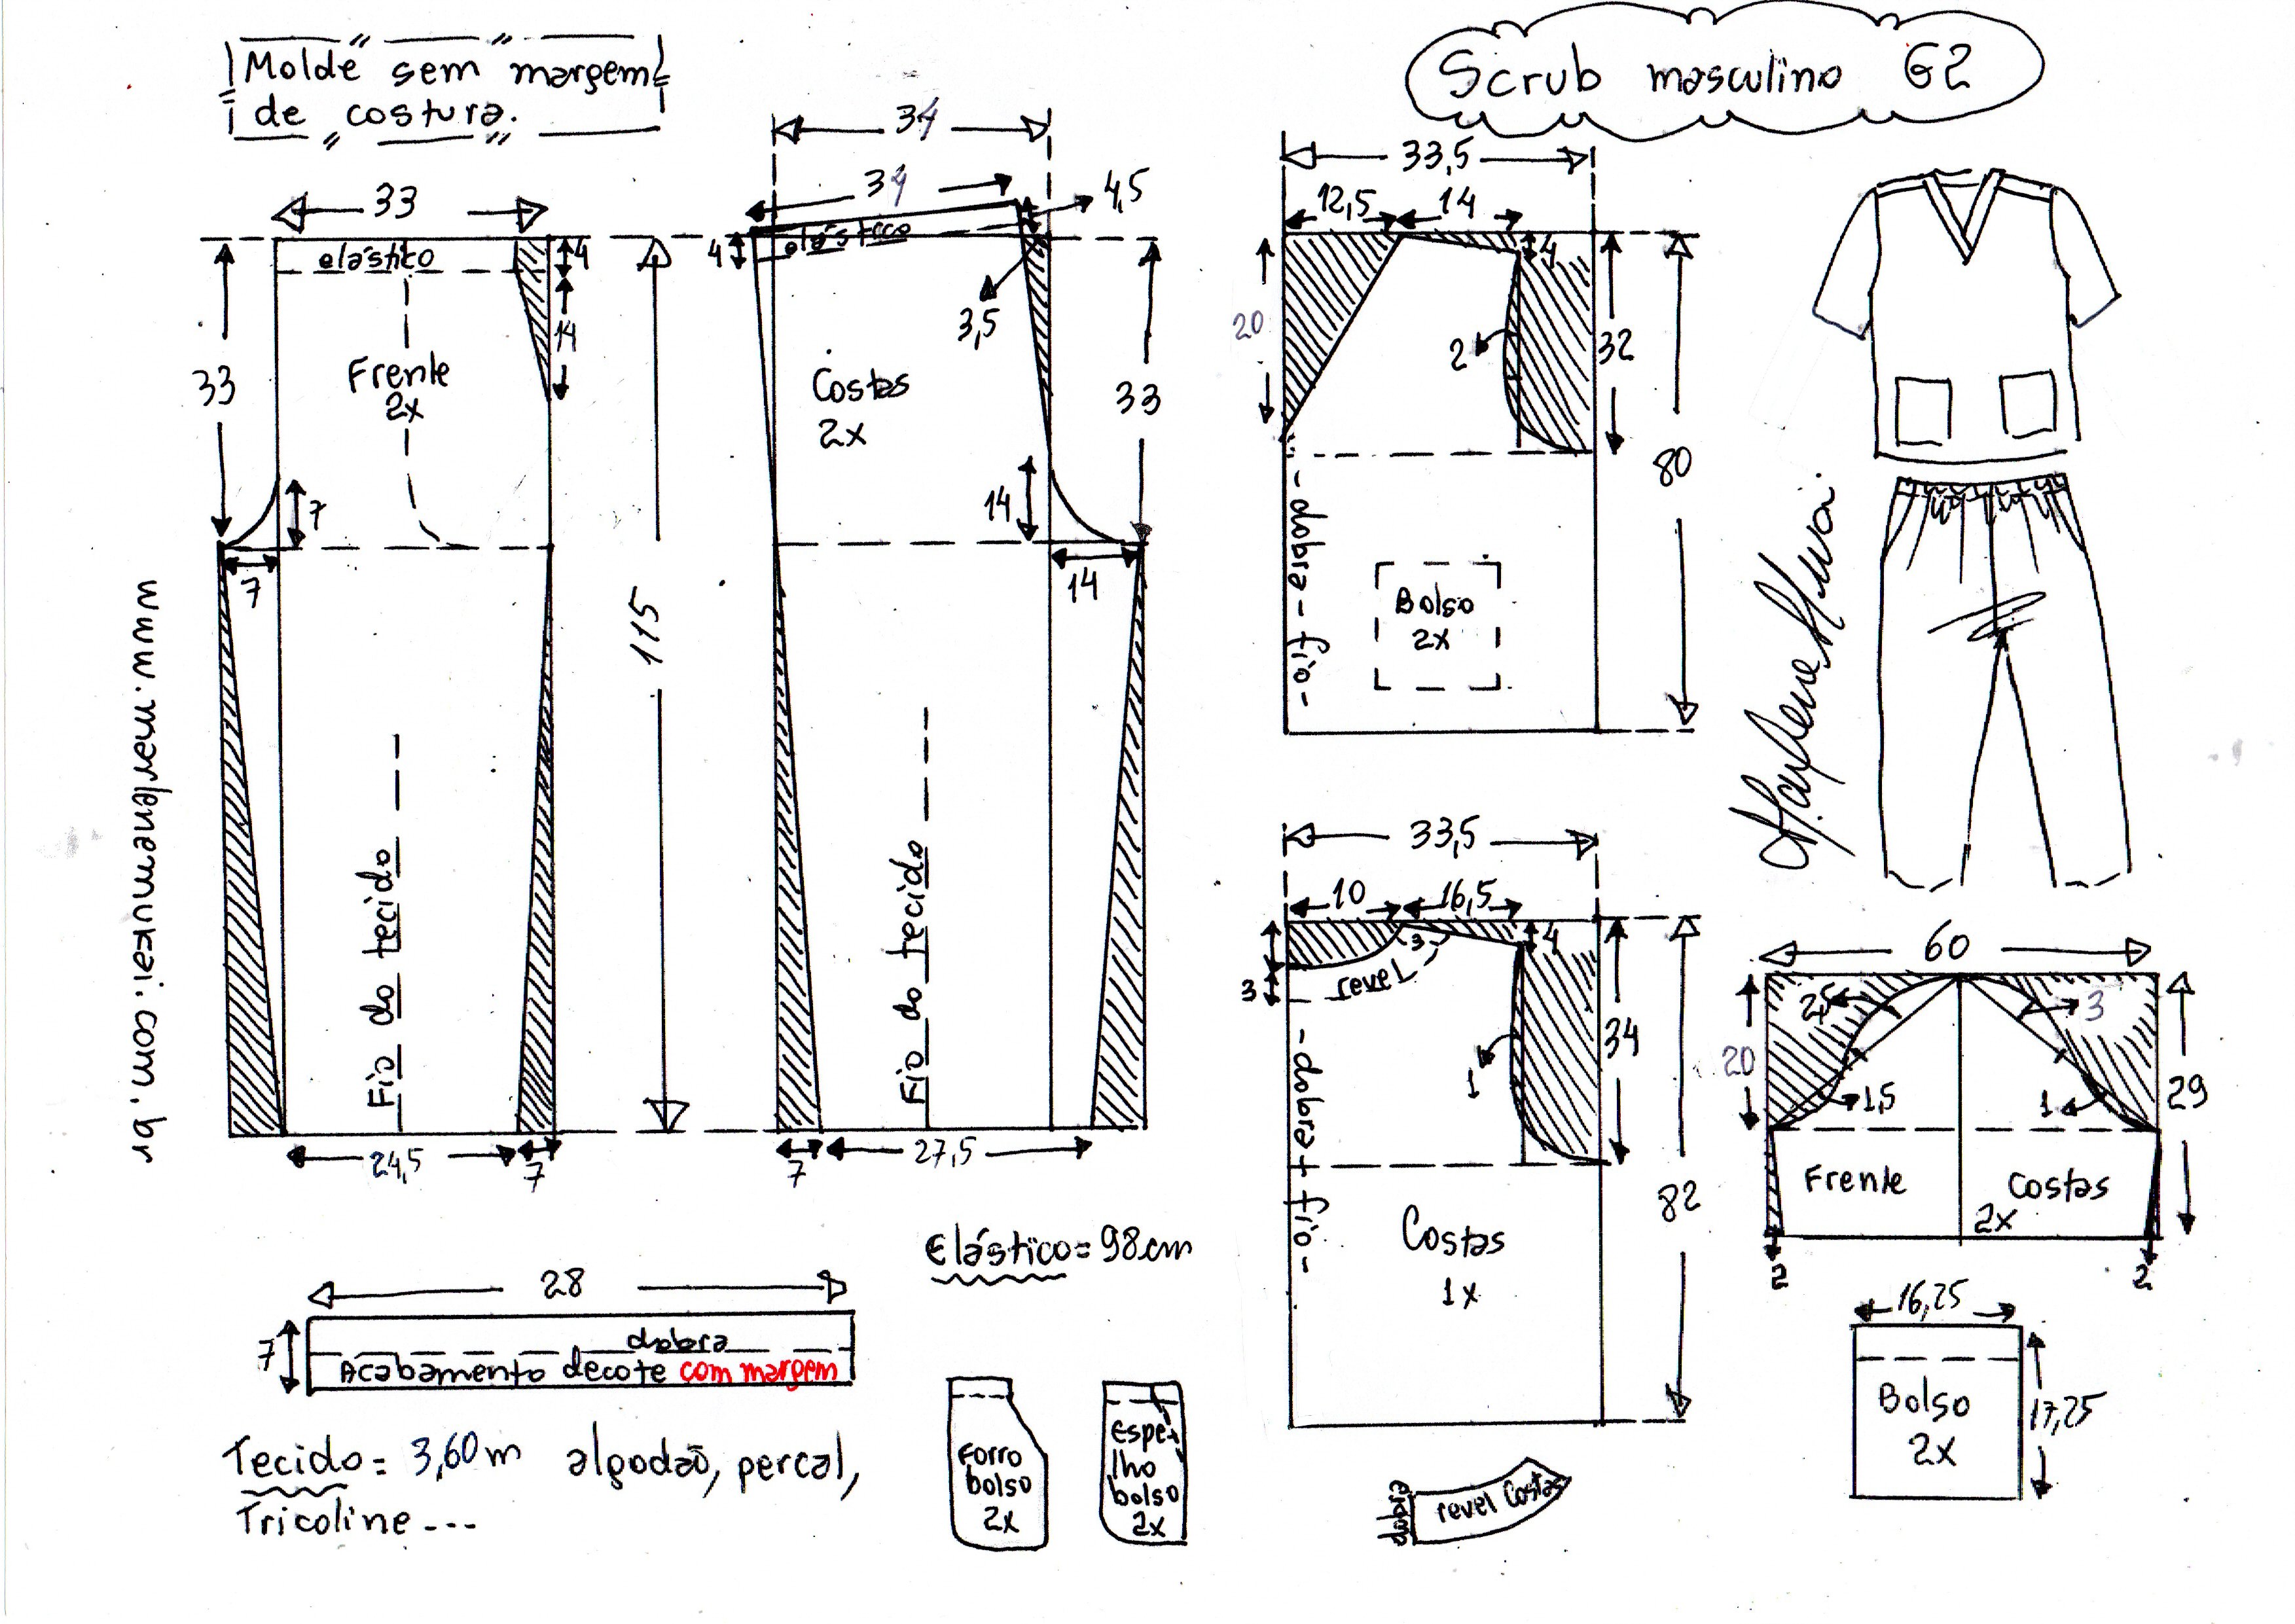 Molde sem margem
de costura.
Scrub masculino G2
33
elástico
4
14
Frente
2x
33
7
7
Fio do tecido
24,5
7
115
34
34
4,5
4
elástico
3,5
Costas
2x
33
14
14
Fio do tecido
7
27,5
33,5
12,5
14
4
20
2
32
80
- dobra - fio -
Bolso
2x
33,5
10
16,5
3
4
3
revel
1
34
82
- dobra + fio -
Costas
1x
60
2,5
3
20
29
1,5
1
Frente
Costas
2x
2
2
16,25
Bolso
2x
17,25
www.marlenemukai.com.br
Marlene Mukai
Elástico = 98cm
28
7
dobra
Acabamento decote com margem
Tecido = 3,60m algodão, percal,
Tricoline ---
Forro
bolso
2x
Espe-
lho
bolso
2x
dobra
revel Costas